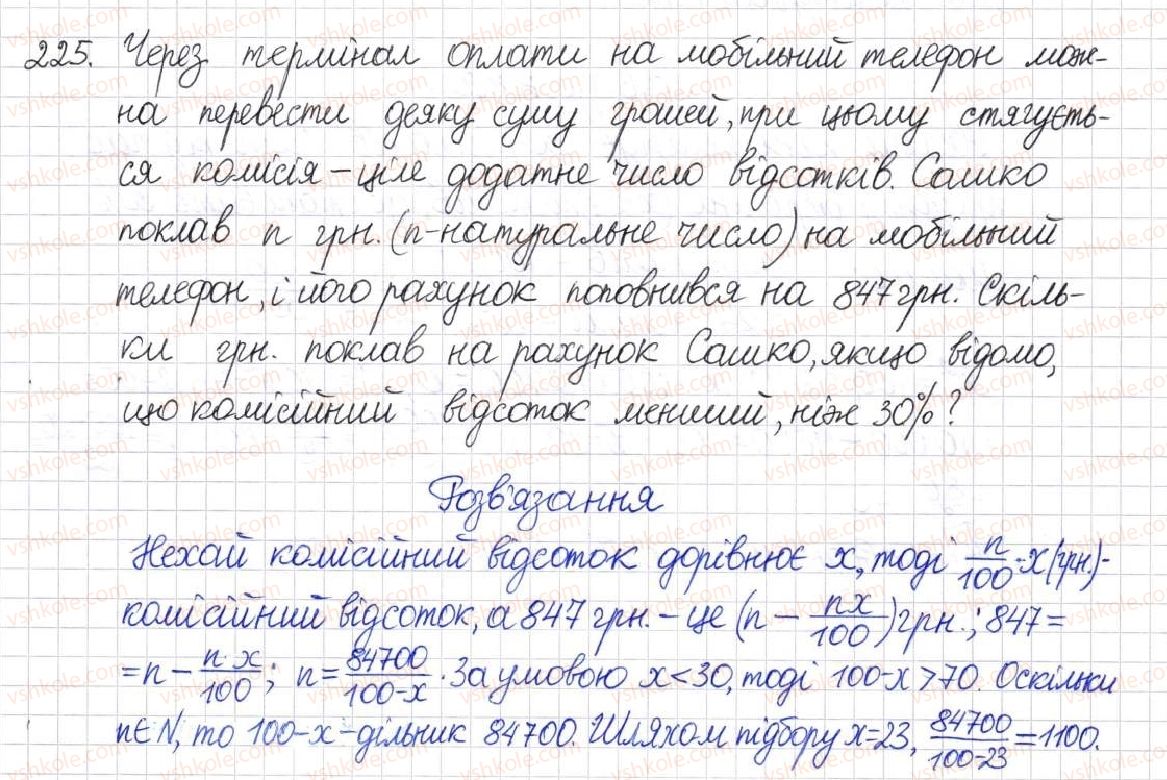 225. Через термінал оплати на мобільний телефон мож-
на перевести деяку суму грошей, при цьому стягуєть-
ся комісія – ціле додатне число відсотків. Сашко
поклав n грн. (n-натуральне число) на мобільний
телефон, і його рахунок поповнився на 847 грн. Скіль-
ки грн. поклав на рахунок Сашко, якщо відомо,
що комісійний відсоток менший, ніж 30%?
Розв'язання
Нехай комісійний відсоток дорівнює x, тоді n/100 · x (грн.) -
комісійний відсоток, а 847 грн. – це (n – nx/100) грн.; 847 =
= n – n·x/100; n = 84700/100-x. За умовою x < 30, тоді 100-x > 70. Оскільки
n ∈ N, то 100-x – дільник 84700. Шляхом підбору x=23, 84700/100-23 = 1100.